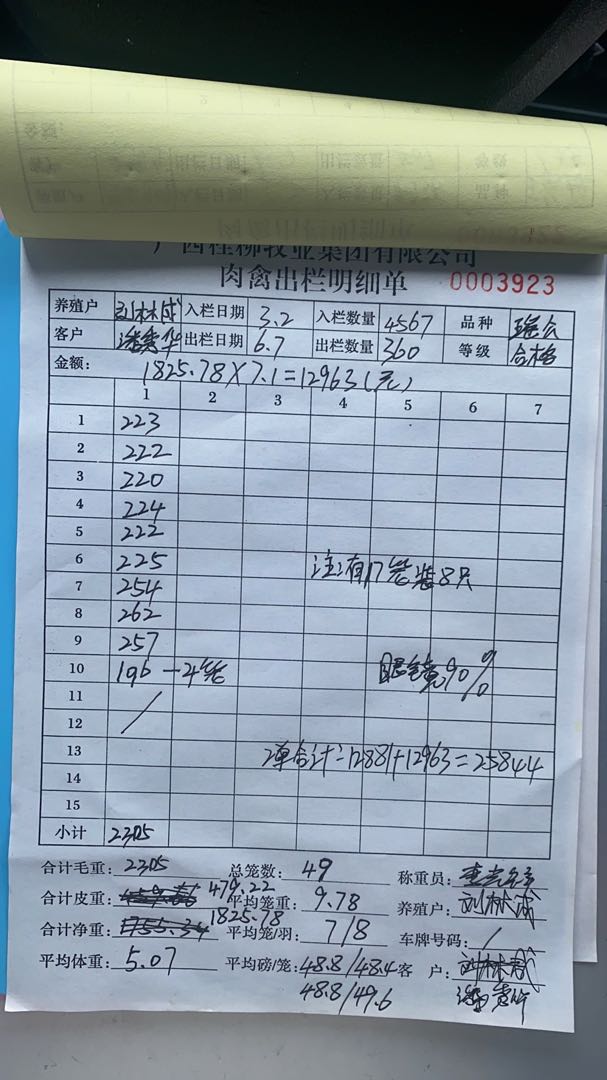 广西桂柳牧业集团有限公司
肉禽出栏明细单 0003923
养殖户 刘林成 入栏日期 3.2 入栏数量 4567 品种
客户 潘秀华 出栏日期 6.7 出栏数量 360 等级 合格
金额: 1825.78×7.1=12963(元)
1 2 3 4 5 6 7
1 223
2 222
3 220
4 224
5 222
6 225 注:有17笼装8只
7 254
8 262
9 257
10 196 一4笼 90%
11
12
13 2单合计:12881+12963=25844
14
15
小计 2305
合计毛重: 2305 总笼数: 49 称重员:
合计皮重: 479.22 平均笼重: 9.78 养殖户: 刘林成
合计净重: 1825.78 平均笼/羽: 7/8 车牌号码: /
平均体重: 5.07 平均磅/笼: 48.8/48.4 客 户:
48.8/49.6